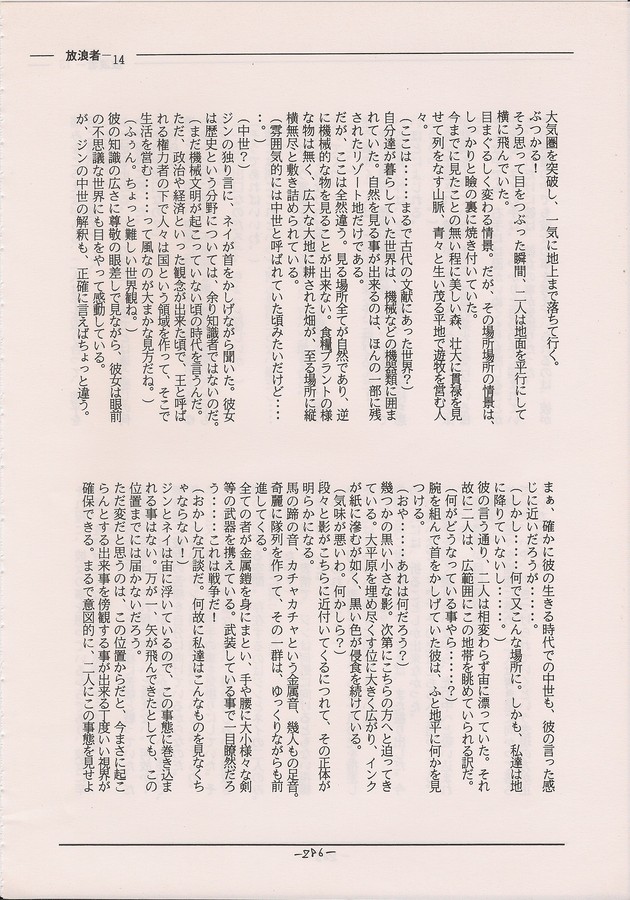 放浪者―14
大気圏を突破し、一気に地上まで落ちて行く。
ぶつかる！
そう思って目をつぶった瞬間、二人は地面を平行にして
横に飛んでいた。
目まぐるしく変わる情景。だが、その場所場所の情景は、
しっかりと瞼の裏に焼き付いていた。
今までに見たことの無い程に美しい森、壮大に貫禄を見
せて列をなす山脈、青々と生い茂る平地で遊牧を営む人
々。
（ここは‥‥まるで古代の文献にあった世界？）
自分達が暮らしていた世界は、機械などの機器類に囲ま
れていた。自然を見る事が出来るのは、ほんの一部に残
されたリゾート地だけである。
だが、ここは全然違う。見る場所全てが自然であり、逆
に機械的な物を見ることが出来ない。食糧プラントの様
な物は無く、広大な大地に耕された畑が、至る場所に縦
横無尽と敷き詰められている。
（雰囲気的には中世と呼ばれていた頃みたいだけど‥‥
‥。）
（中世？）
ジンの独り言に、ネイが首をかしげながら聞いた。彼女
は歴史という分野については、余り知識者ではないのだ。
（まだ機械文明が起こっていない頃の時代を言うんだ。
ただ、政治や経済といった観念が出来た頃で、王と呼ば
れる権力者の下で人々は国という領域を作って、そこで
生活を営む‥‥‥って風なのが大まかな見方だね。）
（ふぅん。ちょっと難しい世界観ね。）
彼の知識の広さに尊敬の眼差しで見ながら、彼女は眼前
の不思議な世界にも目をやって感動している。
が、ジンの中世の解釈も、正確に言えばちょっと違う。
まぁ、確かに彼の生きる時代での中世も、彼の言った感
じに近いだろうが‥‥‥。
（しかし‥‥‥何で又こんな場所に。しかも、私達は地
に降りていないし‥‥‥。）
彼の言う通り、二人は相変わらず宙に漂っていた。それ
故に二人は、広範囲にこの地帯を眺めていられる訳だ。
（何がどうなっている事やら‥‥‥？）
腕を組んで首をかしげていた彼は、ふと地平に何かを見
つける。
（おや‥‥‥あれは何だろう？）
幾つかの黒い小さな影。次第にこちらの方へと迫ってき
ている。大平原を埋め尽くす位に大きく広がり、インク
が紙に滲むが如く、黒い色が侵食を続けている。
（気味が悪いわ。何かしら？）
段々と影がこちらに近付いてくるにつれて、その正体が
明らかになる。
馬の蹄の音、カチャカチャという金属音、幾人もの足音。
奇麗に隊列を作って、その一群は、ゆっくりながらも前
進してくる。
全ての者が金属鎧を身にまとい、手や腰に大小様々な剣
等の武器を携えている。武装している事で一目瞭然だろ
う‥‥‥これは戦争だ！
（おかしな冗談だ。何故に私達はこんなものを見なくち
ゃならない！）
ジンとネイは宙に浮いているので、この事態に巻き込ま
れる事はない。万が一、矢が飛んできたとしても、この
位置までには届かないだろう。
ただ変だと思うのは、この位置からだと、今まさに起こ
らんとする出来事を傍観する事が出来る丁度いい視界が
確保できる。まるで意図的に、二人にこの事態を見せよ